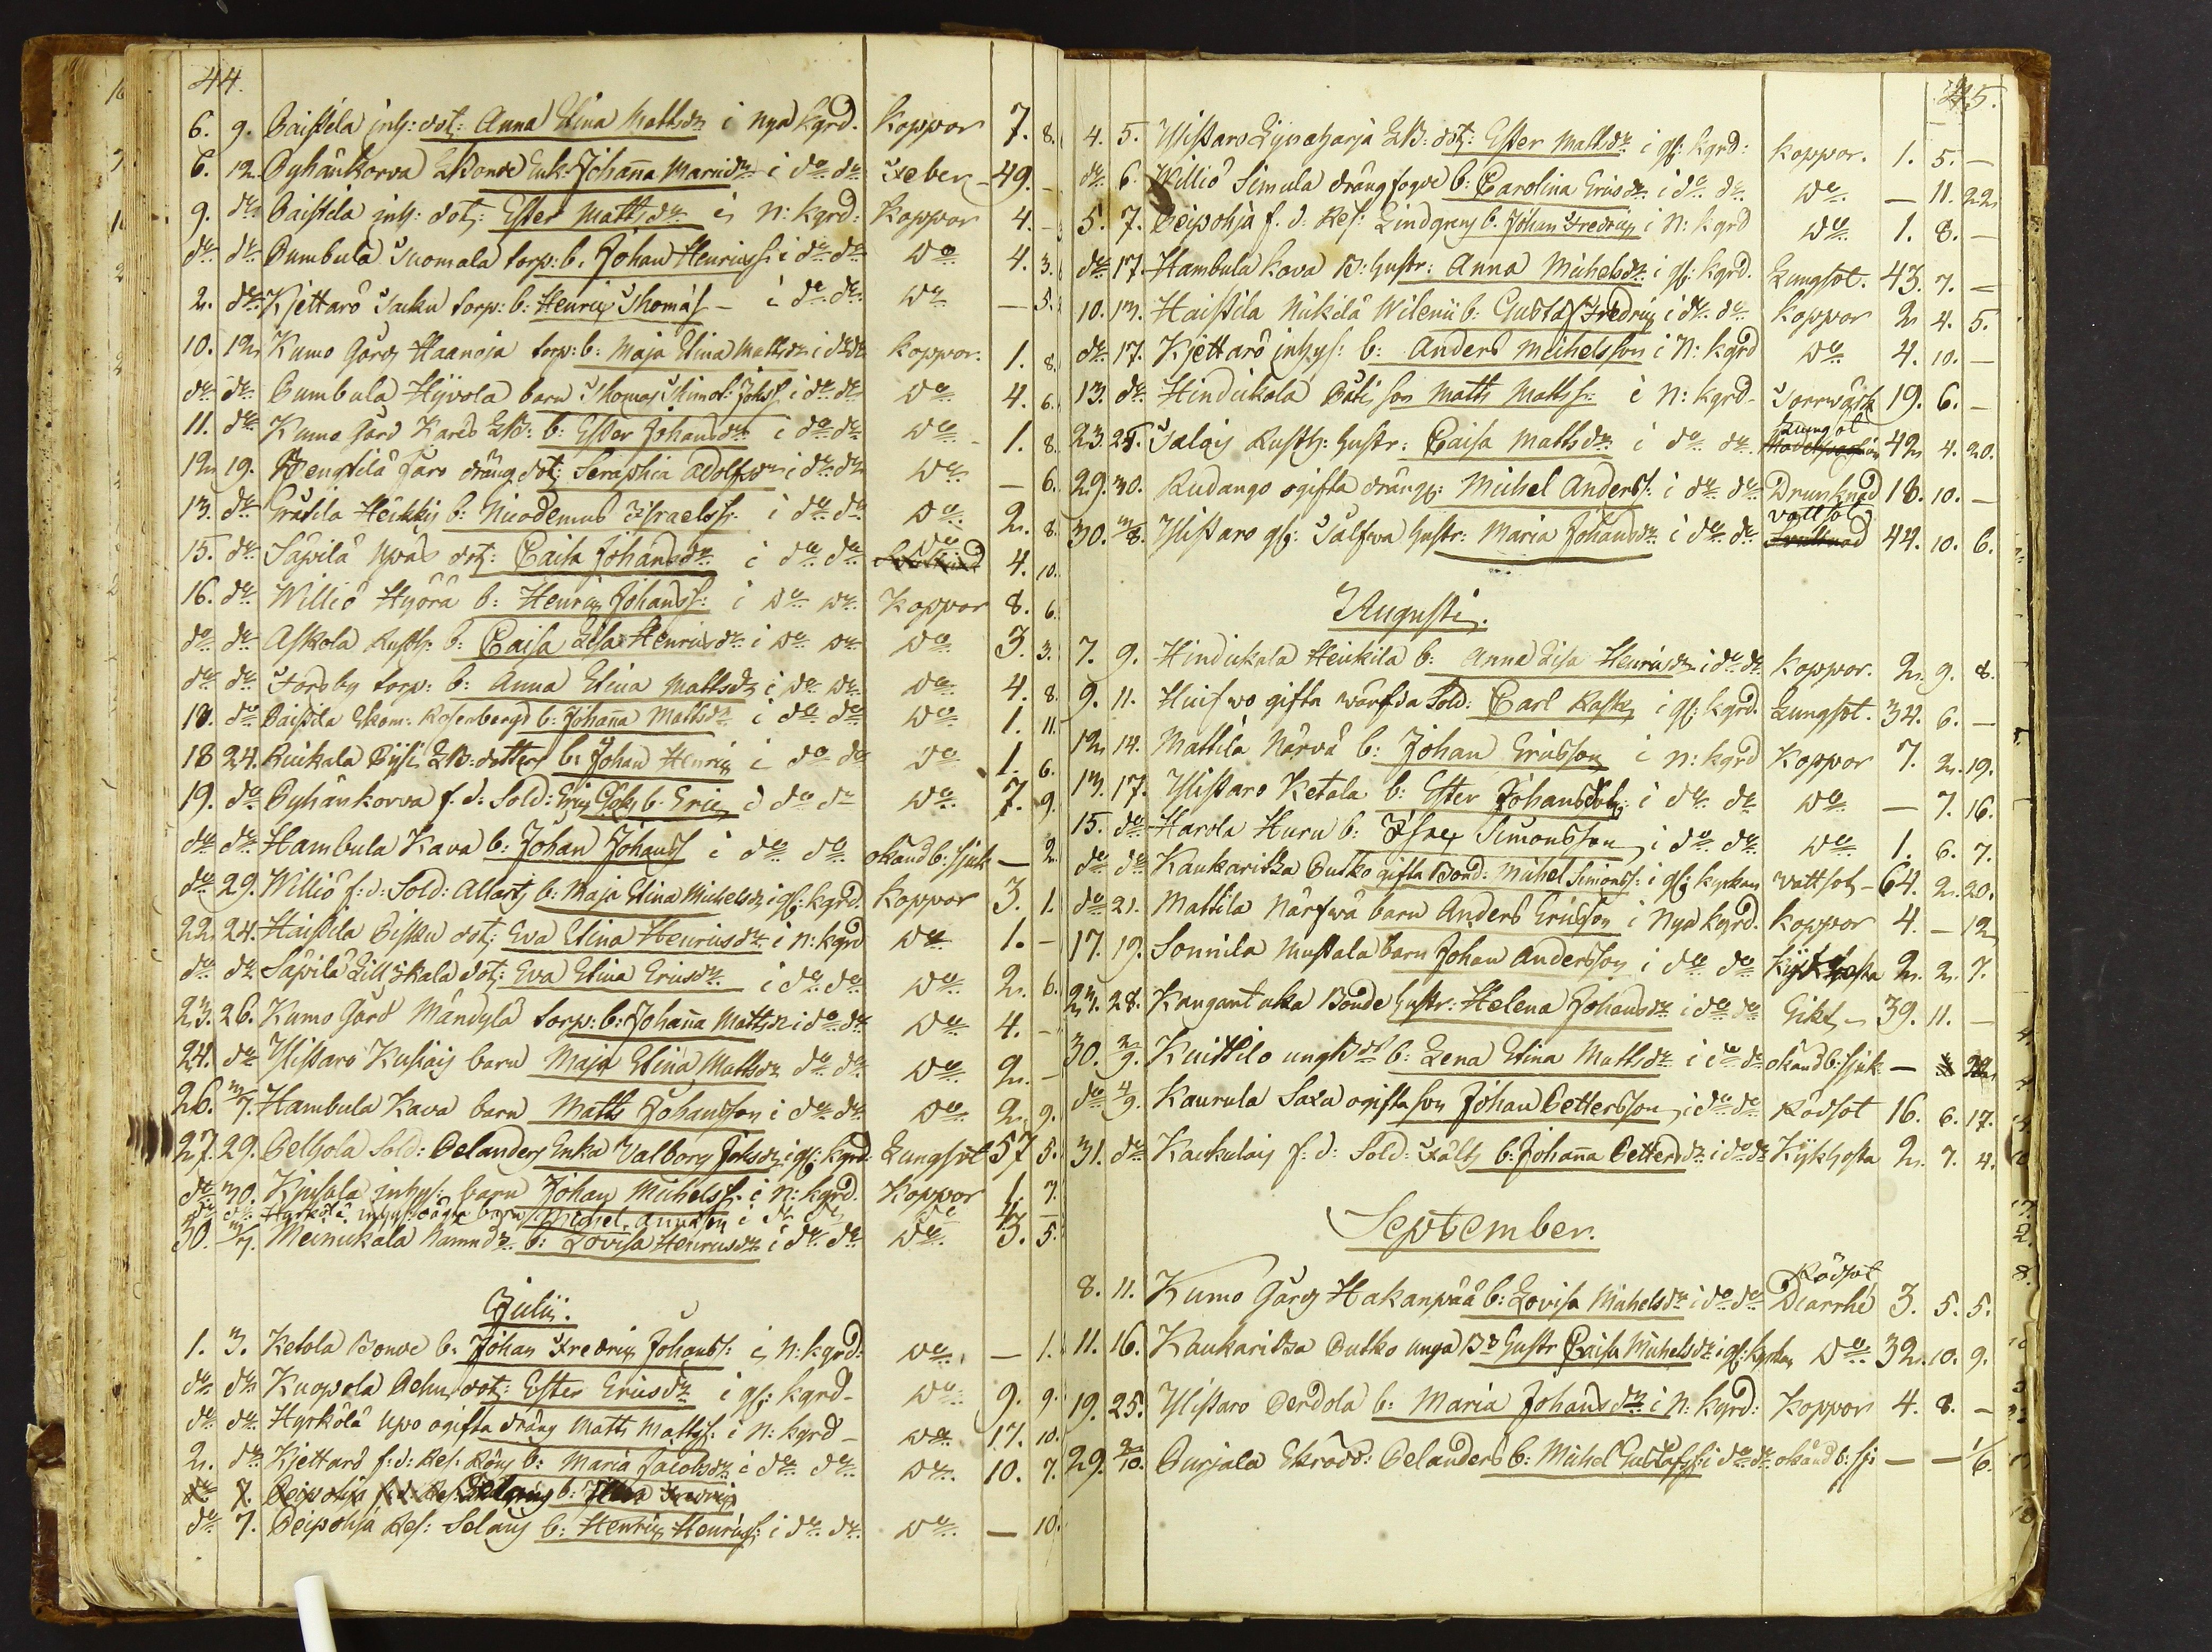 44.
6. 9. Paistila inh: dotr: Anna Stina Mattsdr i nya kgrd. Koppor 7. 8.
6. 12. Pyhänkorva Bonde Enk: Johanna Mariædr i do do Feber 49. –
9. do Paistila inh: dotr: Ester Mattsdr i N: kgrd: Koppor 4. –
do do Pumbula Tuomala torp: b: Johan Henricss: i do do Do 4. 3.
2. do Kjettarö torp: b: Henric Thomas – i do do Do – 5.
10. 12. Kumo Gård Haanoja torp: b: Maja Stina Mattsdr i do do Koppor. 1. 8.
do do Pumbula Hyvola barn Thomas Johss. i do do Do 4. 6.
11. do Kumo Gård Kares b: Ester Johansdr i do do Do 1. 8.
12. 19. dräng dotr: Seraphia Adolfsdr i do do Do – 6.
13. do Heikkis b: Nicodemus Israelss: i do do Do 2. 8.
15. do Säpilä Upas dotr: Caisa Johansdr i do do Do 4. 10.
16. do Williö Hyöra b: Henric Johanss: i Do Do Koppor 8. 6.
do do Askola Rusth: b: Caisa Lisa Henricsdr i Do Do Do 3. 3.
do do Forsby torp: b: Anna Stina Mattsdr i Do Do Do 4. 8.
18. do Paistila Rosenbergs b: Johanna Mattsdr i do do Do 1. 11.
18 24. dotters b: Johan Henric i do do Do 1. 6.
19. do Pyhänkorva f. d: Sold: Eric b. Eric i do do Do 7. 9.
do do Hambula Kava b: Johan Johanss i do do okänd b: sjuk – 2.
do 29. Williö f: d: Sold: Allart b: Maja Stina Michelsdr i gl: kgrd. Koppor 3. 1.
22. 24. Haistila dotr: Eva Stina Henricsdr i N: kgrd Do 1. –
do do Säpilä dotr: Eva Stina Ericsdr i do do Do 2. 6.
23. 26. Kumo Gård Mändylä torp: b: Johanna Mattsdr i do do Do 4. –
24. do Ylistaro Kusiais barn Maja Stina Mattsdr do do Do 2. –
26. 3/7. Hambula Kava barn Matts Johansson i do do Do 2. 9.
27. 29. Sold: Pelanders Enka Valborg Johsdr i gl: kgrd: Lungsot 57 5.
do 30. inhys: barn Johan Michelss: i N: kgrd. Koppor 1. 7.
do do Hyrkölä inhys: barn Michel i do do Do 4. –
30. 3/7. Meinikala Namndm b: Lovisa Henricsdr i do do Do 3. 5.
Julii.
1. 3. Ketola Bonde b: Johan Fredric Johanss: i N: kgrd: Do – 1.
do do dotr: Ester Ericsdr i gl: kgrd – Do 9. 9.
do do Hyrkölä Upo ogifta dräng Matts Mattss: i N: kgrd – Do 17. 10.
2. do Kjettarö f: d: Ref: b: Maria Jacobsdr i do do Do 10. 7.
do 7. Peipohja Ref: Selans b: Henric Henricss: i do do Do – 10.
45.
4. 5. Ylistaro dotr: Ester Mattsdr i gl: kgrd: Koppor. 1. 5. –
do 6. Williö Simula drängfogde b: Carolina Ericsdr i do do Do – 11. 22
5. 7. Peipohja f. d: Ref: Lindgrens b. Johan Fredric i N: kgrd Do 1. 8. –
do 17. Hambula Kava B: hustr: Anna Michelsdr i gl: kgrd. Lungsot. 43. 7. –
10. 13. Haistila Wilenii b: Gustaf Fredric i do do Koppor 2 4. 5.
do 17. Kjettarö inhys: b: Anders Michelsson i N: kgrd Do 4. 10. –
13. do Hindickala son Matts Mattss: i N: kgrd – Torrwärk 19. 6. –
23. 25. Rusth: hustr: Caisa Mattsdr i do do Lungsot 42 4. 20.
29. 30. Rudango ogifta drängen Michel Anderss: i do do Drunknad 18. 10. –
30. 3/8. Ylistaro gl: hustr: Maria Johansdr i do do Vattsot 44. 10. 6.
Augusti.
7. 9. Hindickala Heickila b: Anna Lisa Henricsdr i do do Koppor. 2. 9. 8.
9. 11. gifta Sold: Carl Rask i gl: kgrd. Lungsot. 34. 6. –
12. 14. Mattila Närvä b: Johan Ericsson i N: kgrd Koppor 7. 2. 19.
13. 17. Ylistaro Ketola b: Ester Johansdotr: i do do Do – 7. 16.
15. do Harola Huru b: Isac Simonsson i do do Do 1. 6. 7.
do do Kaukaritza Putko gifta Bond: Michel Simonss: i gl: kyrkan Vattsot – 64. 2. 20.
do 21. Mattila Närfwä barn Anders Ericsson i nya kgrd. Koppor 4. – 12
17. 19. Sonnila Mustala barn Johan Andersson i do do Kykhosta 2. 2. 7.
23. 28. Kangantaka Bonde hustr: Helena Johansdr i do do Gikt – 39. 11. –
30. 3/9. Kuittilo b: Lena Stina Mattsdr i do do okänd b: sjuk –
do 4/9. Kaurula Saxa ogifta son Johan Pettersson i do do Rödsot 16. 6. 17.
31. do f: d: Sold: Fält b: Johanna Pettersdr i do do Kykhosta 2. 7. 4.
September.
8. 11. Kumo Gård Hakanpää b: Lovisa Michelsdr i do do Rödsot Diarrhé 3. 5. 5.
11. 16. Kaukaritza Putko unga hustr Caisa Michelsdr i gl: kyrkan Do 32. 10. 9.
19. 25. Ylistaro Perdola b: Maria Johansdr i N: kgrd: Koppor 4. 8. –
29. 2/10. Purjala Pelanders b: Michel Gustafss: i do do okänd b: sj: – – 1/6.